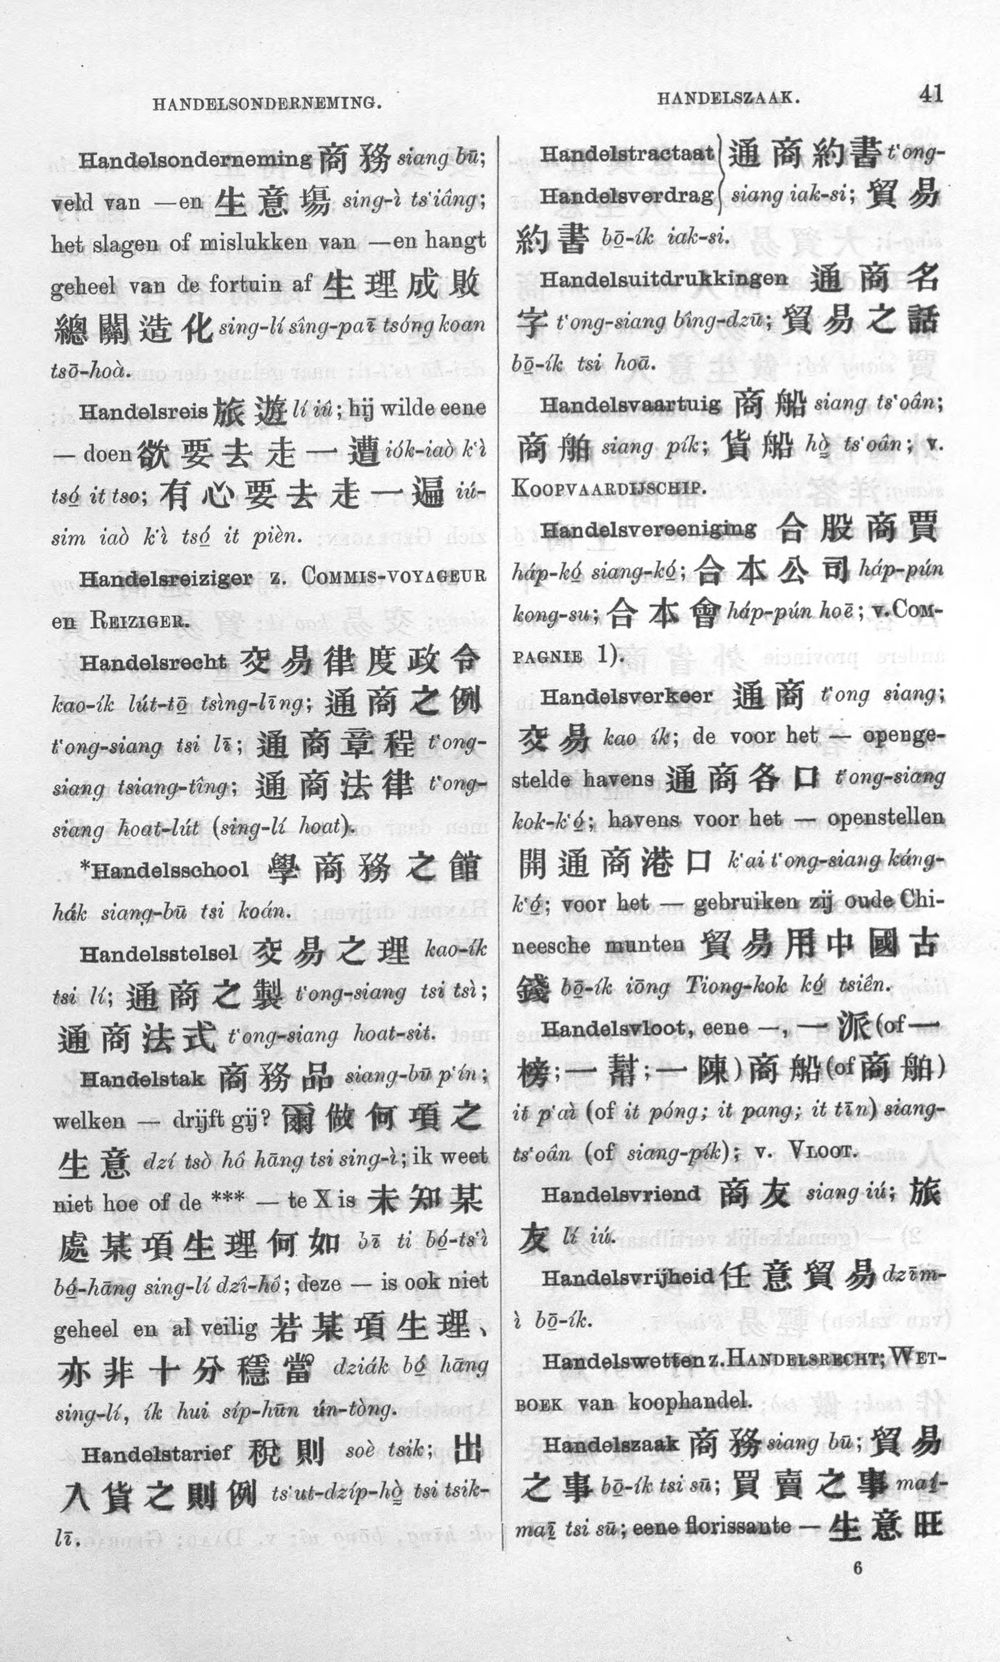 HANDELSONDERNEMING.
HANDELSZAAK.
41
Handelsonderneming 商務 siang bū;
veld van —en 生意塲 sing-ì ts‘iâng;
het slagen of mislukken van —en hangt
geheel van de fortuin af 生理成敗
總關造化 sing-lí sîng-paī tsóng koan
tsō-hoà.
Handelsreis 旅遊 lí iû; hij wilde eene
— doen 欲要去走一遭 iók-iaò k‘ì
tsó it tso; 有心要去走一遍 iú-
sim iaò k‘ì tsó it pièn.
Handelsreiziger z. COMMIS-VOYAGEUR
en REIZIGER.
Handelsrecht 交易律度政令
kao-ík lút-tō tsìng-līng; 通商之例
t‘ong-siang tsi lī; 通商章程 t‘ong-
siang tsiang-tîng; 通商法律 t‘ong-
siang hoat-lút (sing-lí hoat).
*Handelsschool 學商務之館
hák siang-bū tsi koán.
Handelsstelsel 交易之理 kao-ík
tsi lí; 通商之製 t‘ong-siang tsi tsì;
通商法式 t‘ong-siang hoat-sit.
Handelstak 商務品 siang-bū p‘ín;
welken — drijft gij? 爾做何項之
生意 dzí tsò hô hāng tsi sing-ì; ik weet
niet hoe of de *** — te X is 未知某
處某項生理何如 bī ti bó-ts‘ì
bó-hāng sing-lí dzî-hô; deze — is ook niet
geheel en al veilig 若某項生理、
亦非十分穩當 dziák bó hāng
sing-lí, ík hui síp-hūn ún-tòng.
Handelstarief 稅則 soè tsik; 出
入貨之則例 ts‘ut-dzíp-hò tsi tsik-
lī.
Handelstractaat } 通商約書 t‘ong-
Handelsverdrag } siang iak-si; 貿易
約書 bō-ík iak-si.
Handelsuitdrukkingen 通商名
字 t‘ong-siang bîng-dzū; 貿易之話
bō-ík tsi hoā.
Handelsvaartuig 商船 siang ts‘oân;
商舶 siang pík; 貨船 hò ts‘oân; v.
KOOPVAARDIJSCHIP.
Handelsvereeniging 合股商賈
háp-kó siang-kó; 合本公司 háp-pún
kong-su; 合本會 háp-pún hoē; v. COM-
PAGNIE 1).
Handelsverkeer 通商 t‘ong siang;
交易 kao ík; de voor het — openge-
stelde havens 通商各口 t‘ong-siang
kok-k‘ó; havens voor het — openstellen
開通商港口 k‘ai t‘ong-siang káng-
k‘ó; voor het — gebruiken zij oude Chi-
neesche munten 貿易用中國古
錢 bō-ík iōng Tiong-kok kó tsiên.
Handelsvloot, eene —, 一派 (of 一
榜; 一幇; 一陳) 商船 (of 商舶)
it p‘aì (of it póng; it pang; it tīn) siang-
ts‘oân (of siang-pík); v. VLOOT.
Handelsvriend 商友 siang iú; 旅
友 lí iú.
Handelsvrijheid 任意貿易 dzīm-
ì bō-ík.
Handelswetten z. HANDELSRECHT; WET-
BOEK van koophandel.
Handelszaak 商務 siang bū; 貿易
之事 bō-ík tsi sū; 買賣之事 maí-
maī tsi sū; eene florissante — 生意旺
6